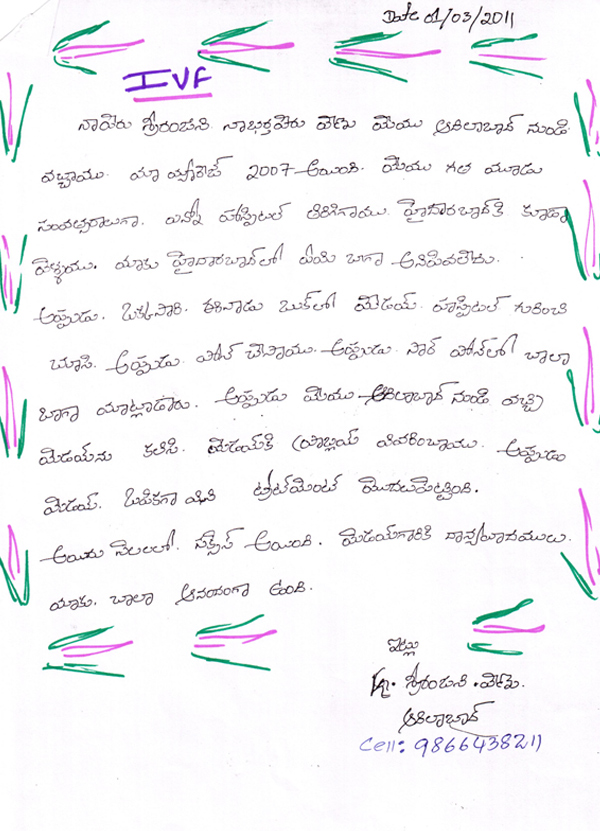 Date 01/03/2011
IVF
నాపేరు శ్రీరంజని. నాభర్తపేరు వేణు మేము ఆదిలాబాద్ నుండి
వచ్చాము. మా మ్యారేజ్ 2007 అయింది. మేము గత మూడు
సంవత్సరాలుగా. ఎన్నో హాస్పిటల్ తిరిగాము. హైదారబాద్‌కి కూడా
వెళ్ళాము. మాకు హైదారబాద్‌లో ఏమి బాగా అనిపివలేదు.
అప్పుడు. ఒక్కసారి. ఈనాడు బుక్‌లో మేడమ్. హాస్పిటల్ గురించి
చూసి. అప్పుడు. ఫోన్ చేసాము. అప్పుడు. సార్ ఫోన్‌లో చాలా
బాగా మాట్లాడారు. అప్పుడు మేము ఆదిలాబాద్ నుండి వచ్చి
మేడమ్‌ను కలిసి. మేడమ్‌కి ప్రాబ్లమ్ వివరించాము. అప్పుడు
మేడమ్. ఓపికగా విని ట్రీట్‌మెంట్ మొదలుపెట్టింది.
అయిదు నెలలలో. సక్సెస్ అయింది. మేడమ్‌గారికి ధాన్యవాదములు.
మాకు. చాలా ఆనందంగా ఉంది.
ఇట్లు
శ్రీరంజని. వేణు.
ఆదిలాబాద్
Cell: 9866438211